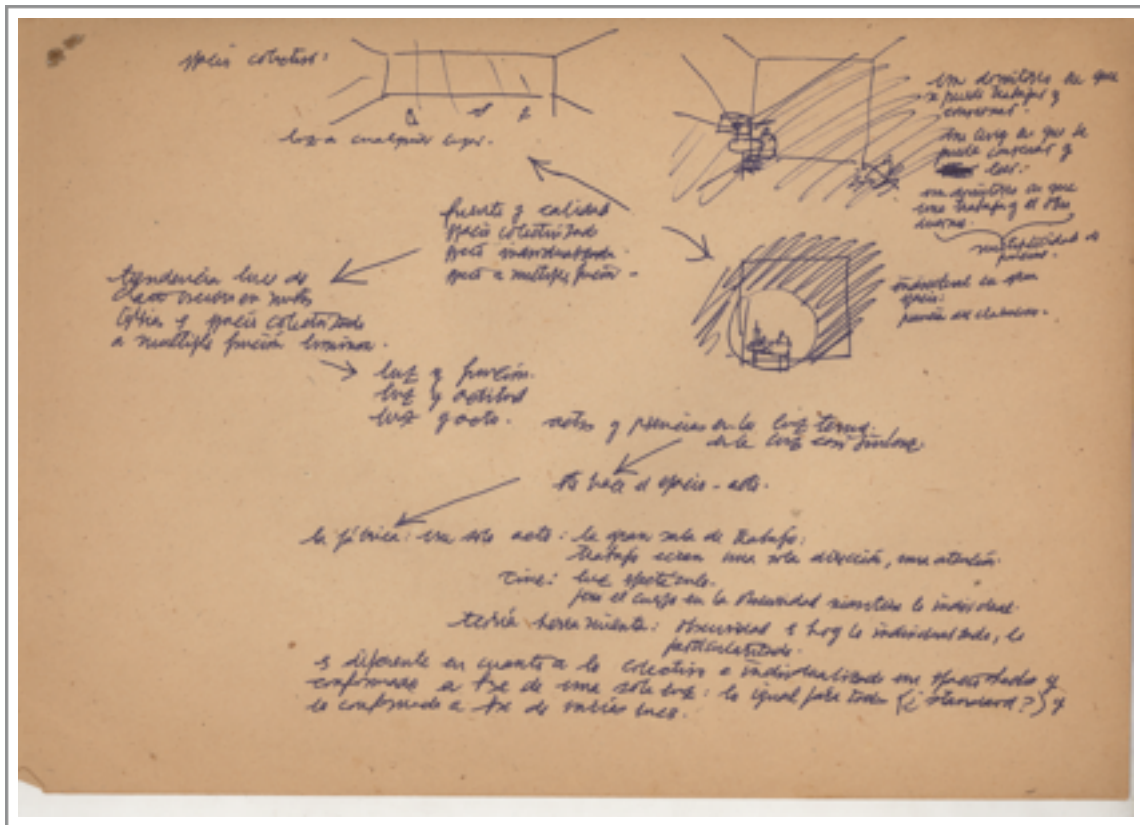 espacio colectivo:
luz a cualquier lugar.
un dormitorio en que
se puede trabajar y
conversar.
un living en que se
puede conversar y
leer.
un dormitorio en que
uno trabaja y el otro
duerme.
multiplicidad de
funciones.
fuente y calidad
espacio colectivizado
espacio individualizado
espacio a multiple función -
individual en gran
espacio:
tendencia luces de
y espacio colectivizado
a multiple función luminosa.
luz y función.
luz y actitud
luz y acto. actos y presencias en la luz tenue
en la luz con
se hace el espacio - acto.
la fábrica: un solo acto: la gran sala de trabajo:
trabajo una sola dirección, una atención.
cine: luz espectáculo.
pero el cuerpo en la obscuridad mantiene lo individual.
teoría herramienta: obscuridad es hoy lo individualizado, lo
particularizado.
es diferente en cuanto a lo colectivo e individualizado un espacio
conformado a base de una sola luz: lo igual para todos (¿standard?) y
lo conformado a base de varias luces.